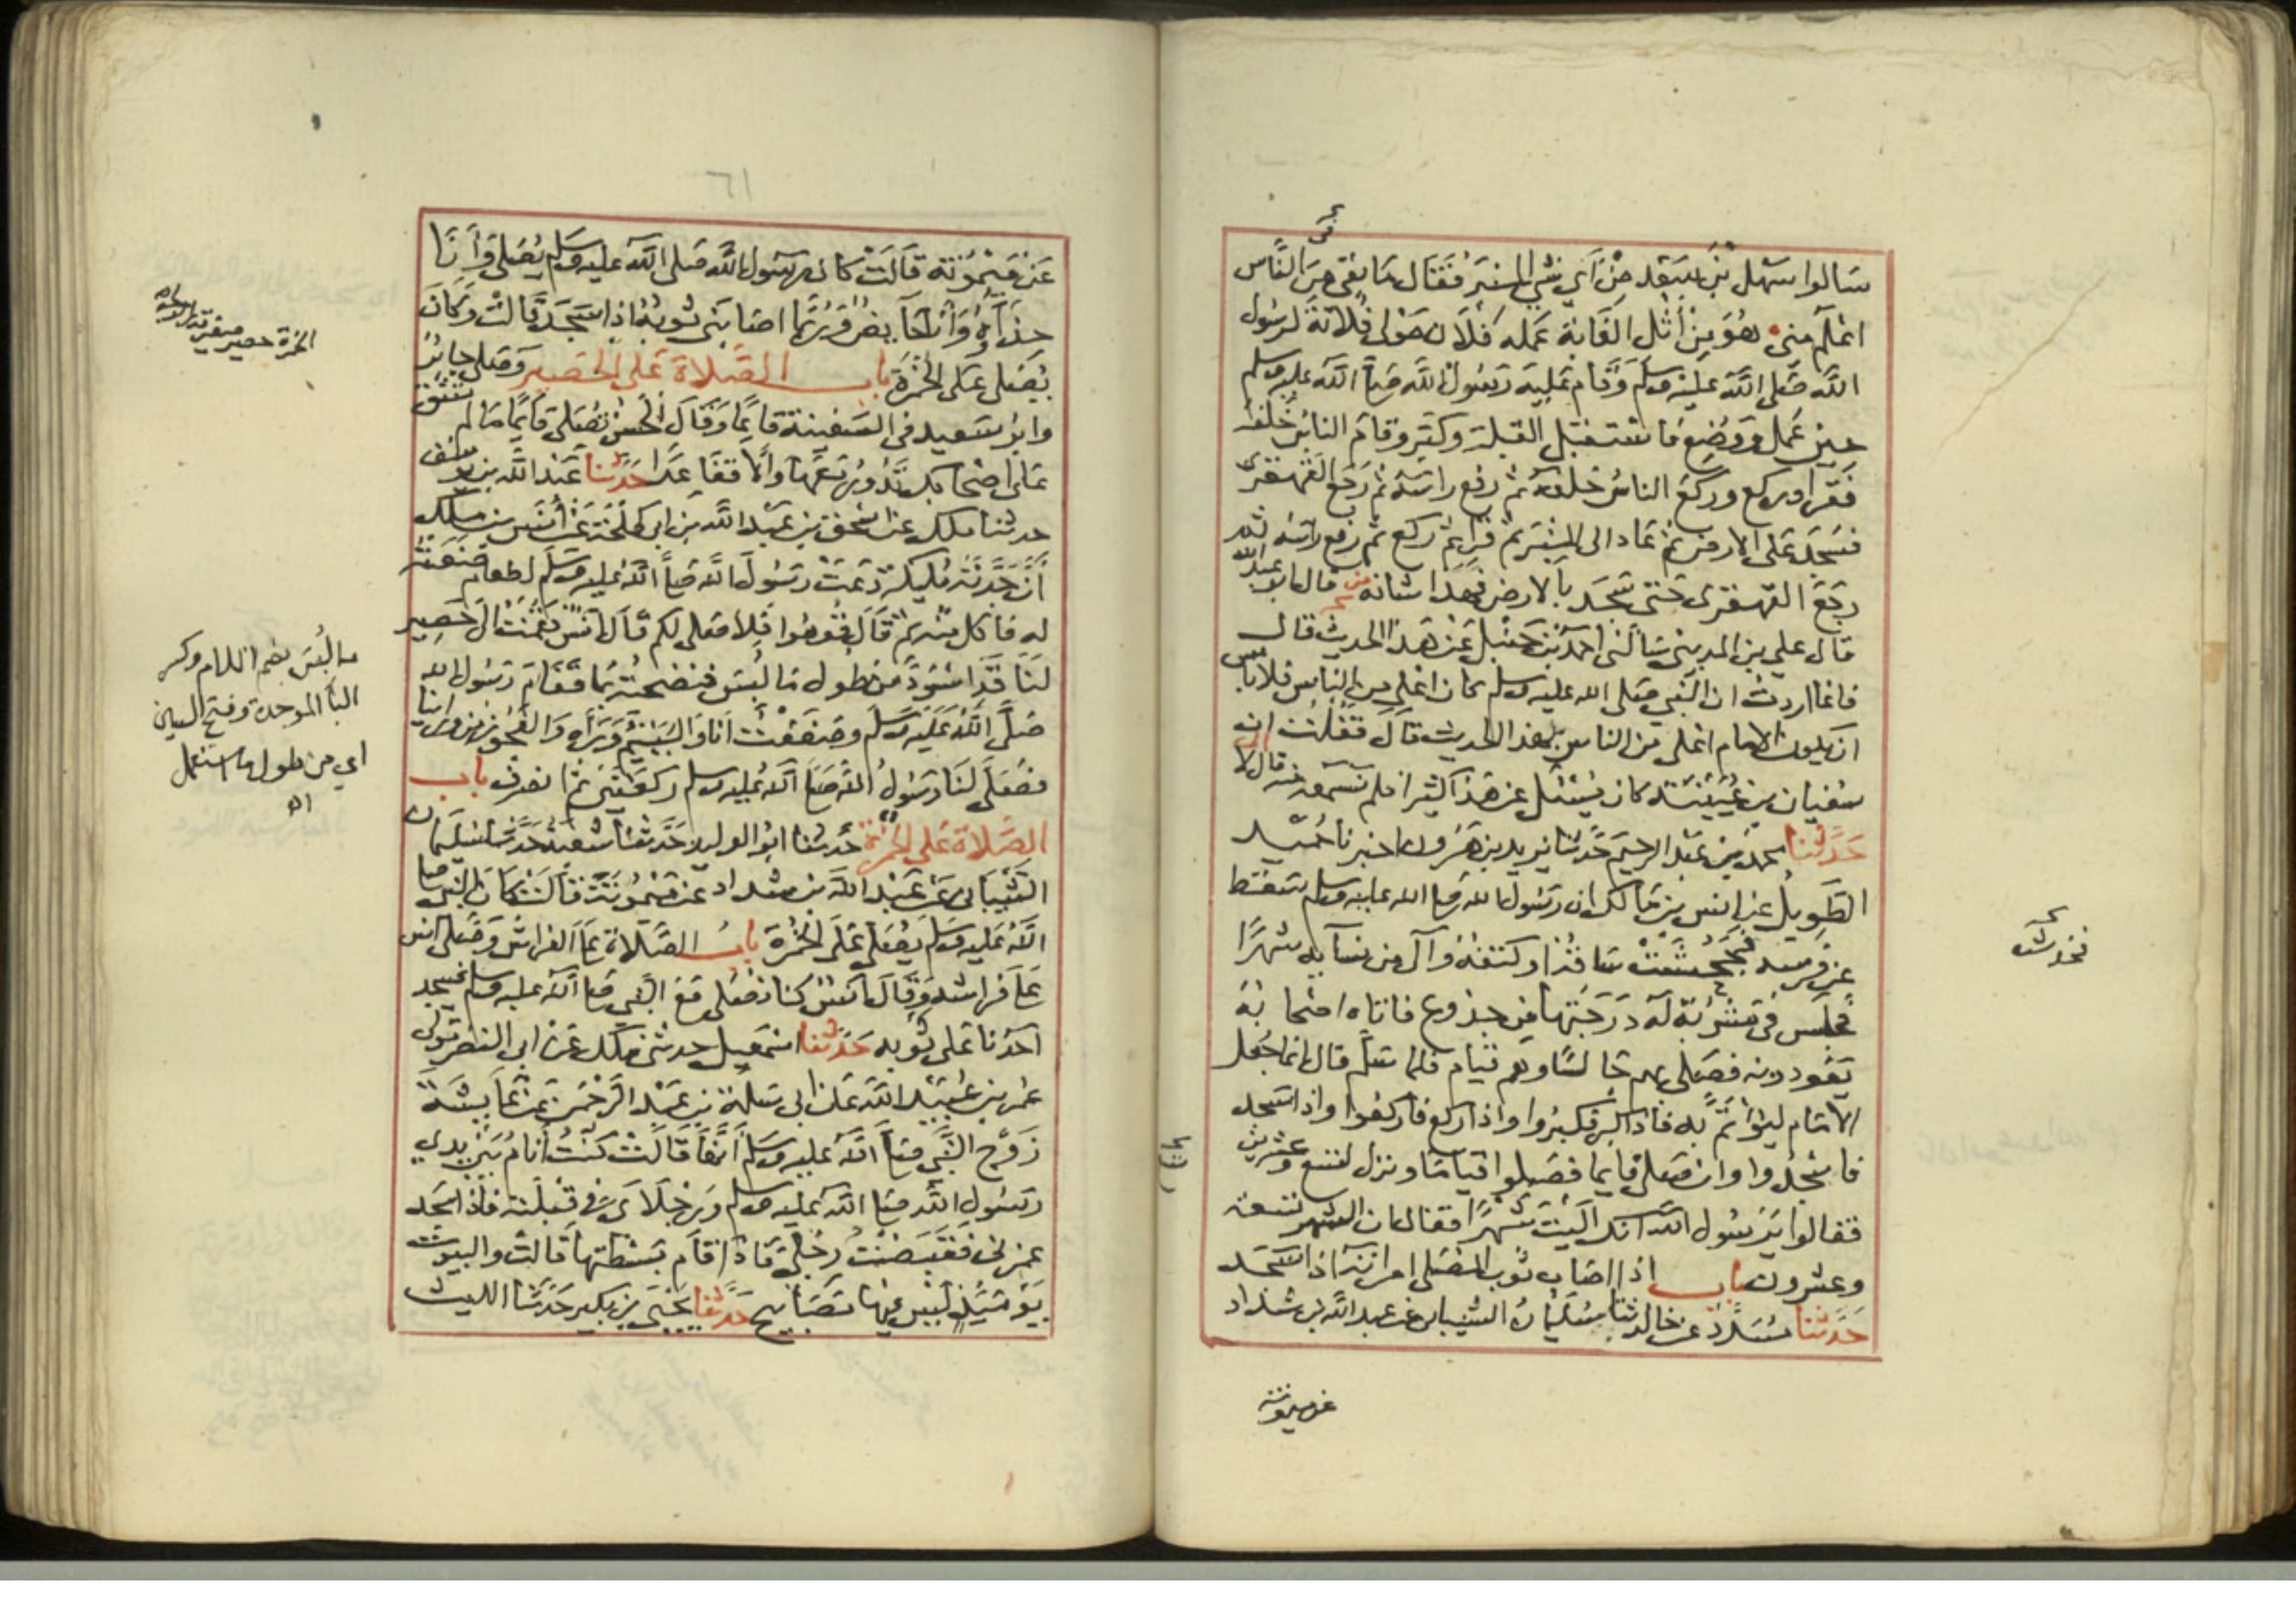 سالوا سهل بن سعد من اي شي المنبر فقال ما بقي من الناس
في
اعلم مني هو من أثل الغابة عمله فلان مولى فلانة لرسول
الله صلى الله عليه وسلم وقام عليه رسول الله صلى الله عليه وسلم
حين عمل ووضع فاستقبل القبلة وكبر وقام الناس خلفه
فقرا وركع وركع الناس خلفه ثم رفع راسه ثم رجع القهقرى
فسجد على الارض ثم عاد الى المنبر ثم قرا ثم ركع ثم رفع راسه ثم
رجع القهقرى حتى سجد بالارض فهذا شانه قال ابو عبد الله
قال علي بن المديني سالني احمد بن حنبل عن هذا الحديث قال
فانما اردت ان النبي صلى الله عليه وسلم كان اعلى من الناس فلا باس
ان يكون الامام اعلى من الناس بهذا الحديث قال فقلت ان
سفيان بن عيينة كان يسئل عن هذا كثيرا فلم تسمعه منه قال لا
حدثنا محمد بن عبد الرحيم حدثنا يزيد بن هرون اخبرنا حميد
الطويل عن انس بن مالك ان رسول الله صلى الله عليه وسلم سقط
عن فرسه فجحشت ساقه او كتفه وآلى من نسآيه شهرا
فخدشت
فجلس في مشربة له درجتها من جذوع فاتاه اصحابه
يعودونه فصلى بهم جالسا وهم قيام فلما سلم قال انما جعل
الامام ليؤتم به فاذا كبر فكبروا واذا ركع فاركعوا واذا سجد
فاسجدوا وان صلى قايما فصلوا قياما ونزل لتسع وعشرين
فقالوا يرسول الله انك آليت شهرا فقال ان الشهر تسعة
وعشرون باب اذا اصاب ثوب المصلي امراته اذا سجد
حدثنا مسدد عن خالد ثنا سليمان الشيباني عن عبد الله بن شداد
عن ميمونة
٦١
عن ميمونة قالت كان رسول الله صلى الله عليه وسلم يصلي وأنا
حذآءه وأنا حآيض وربما اصابني ثوبه اذا سجد قالت وكان
يصلي على الخمرة باب الصلاة على الحصير وصلى جابر
وابو سعيد في السفينة قايما وقال الحسن تصلي قايما ما لم تشق
على اصحابك تدور معها والا فقاعدا حدثنا عبد الله بن يوسف
حدثنا ملك عن اسحق بن عبد الله بن ابي طلحة عن أنس بن ملك
أن جدته مليكة دعت رسول الله صلى الله عليه وسلم لطعام صنعته
له فاكل منه ثم قال قوموا فلاصلي لكم قال انس فقمت الى حصير
لنا قد اسود من طول ما لبس فنضحته بما فقام رسول الله
صلى الله عليه وسلم وصففت انا واليتيم ورآه والعجوز من ورائنا
فصلى لنا رسول الله صلى الله عليه وسلم ركعتين ثم انصرف باب
الصلاة على الخمرة حدثنا ابو الوليد حدثنا شعبة حدثنا سليمان
الشيباني عن عبد الله بن شداد عن ميمونة قالت كان النبي صلى
الله عليه وسلم يصلي على الخمرة باب الصلاة على الفراش وصلى انس
على فراشه وقال انس كنا نصلي مع النبي صلى الله عليه وسلم فيسجد
احدنا على ثوبه حدثنا اسمعيل حدثني ملك عن ابي النضر مولى
عمر بن عبيد الله عن ابي سلمة بن عبد الرحمن عن عايشة
زوج النبي صلى الله عليه وسلم أنها قالت كنت أنام بين يدي
رسول الله صلى الله عليه وسلم ورجلاي في قبلته فاذا سجد
غمزني فقبضت رجلي فاذا قام بسطتهما قالت والبيوت
يومئذ ليس فيها مصابيح حدثنا يحيى بن بكير حدثنا الليث
الخمرة حصير صغيرة
ما لبس بضم اللام وكسر
البآ الموحدة وفتح السين
اي من طول ما استعمل
اه